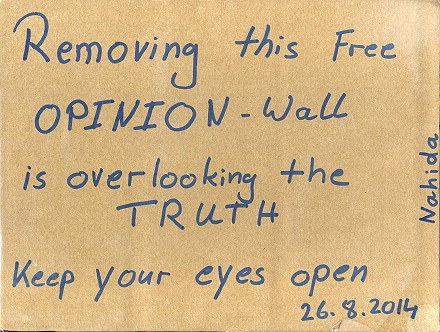 Removing this Free
OPINION-Wall
is overlooking the
TRUTH
Keep your eyes open
26.8.2014
Nahida